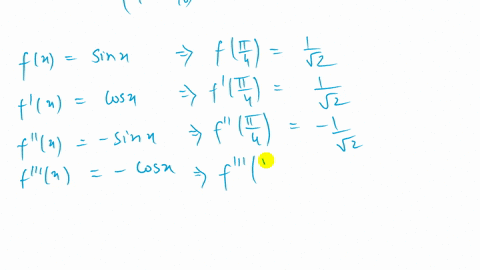 f(x) = sinx ⇒ f(π/4) = 1/√2
f'(x) = cosx ⇒ f'(π/4) = 1/√2
f''(x) = -sinx ⇒ f''(π/4) = -1/√2
f'''(x) = - cosx ⇒ f'''(